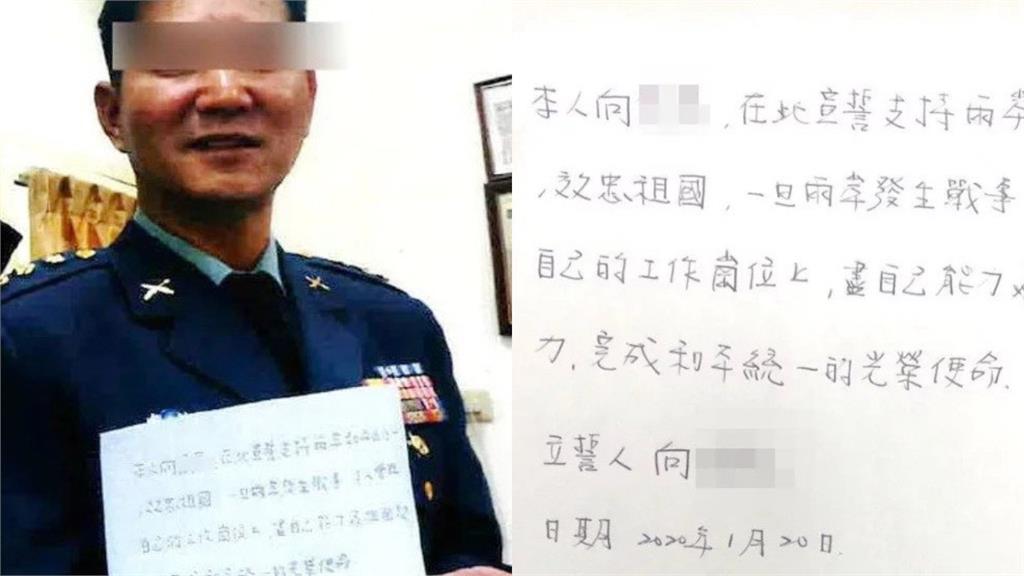 本人向 在此宣誓支持兩岸
,效忠祖國 一旦兩岸發生戰事
自己的工作崗位上,盡自己能力
一的光榮使命
本人向 ,在此宣誓支持兩岸
,效忠祖國,一旦兩岸發生戰事
自己的工作崗位上,盡自己能力
力,完成和平統一的光榮使命.
立誓人 向
日期 2020年1月20日.